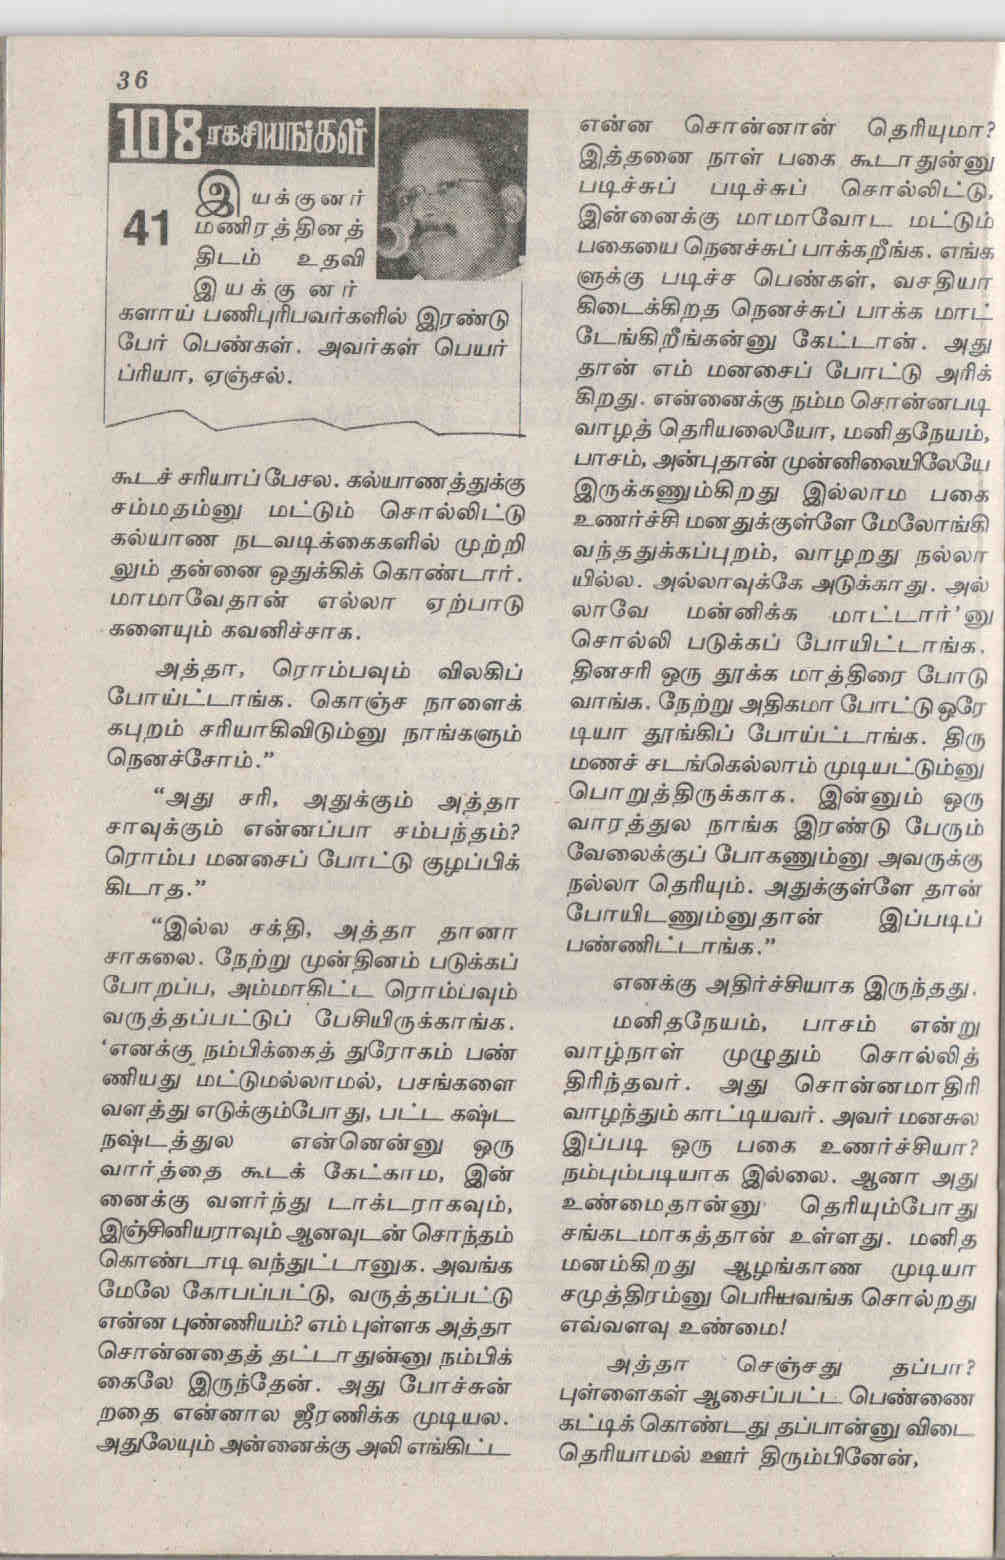 36
108 ரகசியங்கள்
41
இயக்குனர்
மணிரத்தினத்
திடம் உதவி
இயக்குனர்
களாய் பணிபுரிபவர்களில் இரண்டு
பேர் பெண்கள். அவர்கள் பெயர்
ப்ரியா, ஏஞ்சல்.
கூடச் சரியாப் பேசல. கல்யாணத்துக்கு
சம்மதம்னு மட்டும் சொல்லிட்டு
கல்யாண நடவடிக்கைகளில் முற்றி
லும் தன்னை ஒதுக்கிக் கொண்டார்.
மாமாவேதான் எல்லா ஏற்பாடு
களையும் கவனிச்சாக.
அத்தா, ரொம்பவும் விலகிப்
போய்ட்டாங்க. கொஞ்ச நாளைக்
கபுறம் சரியாகிவிடும்னு நாங்களும்
நெனச்சோம்.”
“அது சரி, அதுக்கும் அத்தா
சாவுக்கும் என்னப்பா சம்பந்தம்?
ரொம்ப மனசைப் போட்டு குழப்பிக்
கிடாத.”
“இல்ல சக்தி, அத்தா தானா
சாகலை. நேற்று முன்தினம் படுக்கப்
போறப்ப, அம்மாகிட்ட ரொம்பவும்
வருத்தப்பட்டுப் பேசியிருக்காங்க.
‘எனக்கு நம்பிக்கைத் துரோகம் பண்
ணியது மட்டுமல்லாமல், பசங்களை
வளத்து எடுக்கும்போது, பட்ட கஷ்ட
நஷ்டத்துல என்னென்னு ஒரு
வார்த்தை கூடக் கேட்காம, இன்
னைக்கு வளர்ந்து டாக்டராகவும்,
இஞ்சினியராவும் ஆனவுடன் சொந்தம்
கொண்டாடி வந்துட்டானுக. அவங்க
மேலே கோபப்பட்டு, வருத்தப்பட்டு
என்ன புண்ணியம்? எம் புள்ளக அத்தா
சொன்னதைத் தட்டாதுன்னு நம்பிக்
கைலே இருந்தேன். அது போச்சுன்
றதை என்னால ஜீரணிக்க முடியல.
அதுலேயும் அன்னைக்கு அலி எங்கிட்ட
என்ன சொன்னான் தெரியுமா?
இத்தனை நாள் பகை கூடாதுன்னு
படிச்சுப் படிச்சுப் சொல்லிட்டு,
இன்னைக்கு மாமாவோட மட்டும்
பகையை நெனச்சுப் பாக்கறீங்க. எங்க
ளுக்கு படிச்ச பெண்கள், வசதியா
கிடைக்கிறத நெனச்சுப் பாக்க மாட்
டேங்கிறீங்கன்னு கேட்டான். அது
தான் எம் மனசைப் போட்டு அரிக்
கிறது. என்னைக்கு நம்ம சொன்னபடி
வாழத் தெரியலையோ, மனிதநேயம்,
பாசம், அன்புதான் முன்னிலையிலேயே
இருக்கணும்கிறது இல்லாம பகை
உணர்ச்சி மனதுக்குள்ளே மேலோங்கி
வந்ததுக்கப்புறம், வாழறது நல்லா
யில்ல. அல்லாவுக்கே அடுக்காது. அல்
லாவே மன்னிக்க மாட்டார்’னு
சொல்லி படுக்கப் போயிட்டாங்க.
தினசரி ஒரு தூக்க மாத்திரை போடு
வாங்க. நேற்று அதிகமா போட்டு ஒரே
டியா தூங்கிப் போய்ட்டாங்க. திரு
மணச் சடங்கெல்லாம் முடியட்டும்னு
பொறுத்திருக்காக. இன்னும் ஒரு
வாரத்துல நாங்க இரண்டு பேரும்
வேலைக்குப் போகணும்னு அவருக்கு
நல்லா தெரியும். அதுக்குள்ளே தான்
போயிடணும்னுதான் இப்படிப்
பண்ணிட்டாங்க.”
எனக்கு அதிர்ச்சியாக இருந்தது.
மனிதநேயம், பாசம் என்று
வாழ்நாள் முழுதும் சொல்லித்
திரிந்தவர். அது சொன்னமாதிரி
வாழந்தும் காட்டியவர். அவர் மனசுல
இப்படி ஒரு பகை உணர்ச்சியா?
நம்பும்படியாக இல்லை. ஆனா அது
உண்மைதான்னு தெரியும்போது
சங்கடமாகத்தான் உள்ளது. மனித
மனம்கிறது ஆழங்காண முடியா
சமுத்திரம்னு பெரியவங்க சொல்றது
எவ்வளவு உண்மை!
அத்தா செஞ்சது தப்பா?
புள்ளைகள் ஆசைப்பட்ட பெண்ணை
கட்டிக் கொண்டது தப்பான்னு விடை
தெரியாமல் ஊர் திரும்பினேன்,